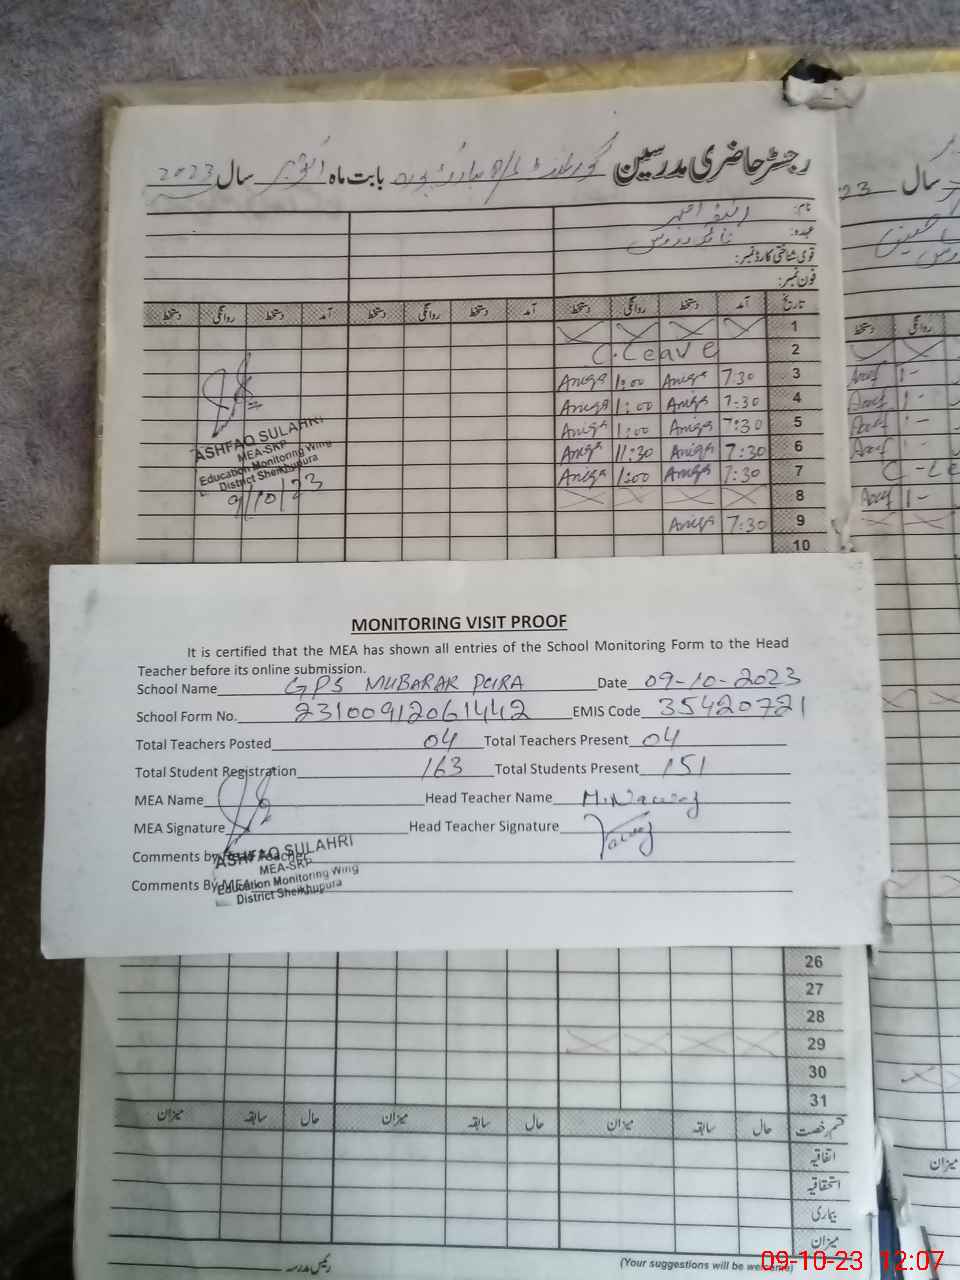 رجسٹر حاضری مدرسین گورنمنٹ بابت ماہ اکتوبر سال 2023
سال 23
نام:
عہدہ:
قومی شناختی کارڈ نمبر:
فون نمبر:
تاریخ آمد دستخط روانگی دستخط آمد دستخط روانگی دستخط آمد دستخط روانگی دستخط
روانگی دستخط
1
C. Leave 2
Aniqa 1:00 Aniqa 7:30 3
Aniqa 1:00 Aniqa 7:30 4
Aniqa 1:00 Aniqa 7:30 5
Aniqa 11:30 Aniqa 7:30 6
Aniqa 1:00 Aniqa 7:30 7
8
Aniqa 7:30 9
10
C-Le
ASHFAQ SULAHRI
MEA-SKP
Education Monitoring Wing
District Sheikhupura
9/10/23
MONITORING VISIT PROOF
It is certified that the MEA has shown all entries of the School Monitoring Form to the Head
Teacher before its online submission.
School Name GPS MUBARAK PURA Date 09-10-2023
School Form No. 23100912061442 EMIS Code 35420721
Total Teachers Posted 04 Total Teachers Present 04
Total Student Registration 163 Total Students Present 151
MEA Name Head Teacher Name M.Nawaz
MEA Signature Head Teacher Signature Nawaz
Comments by Head Teacher
Comments By MEA
ASHFAQ SULAHRI
MEA-SKP
Education Monitoring Wing
District Sheikhupura
26
27
28
29
30
31
قسم رخصت حال سابقہ میزان حال سابقہ میزان حال سابقہ میزان
میزان
اتفاقیہ
استحقاقیہ
بیماری
میزان
رئیس مدرسہ
(Your suggestions will be welcome)
09-10-23 12:07